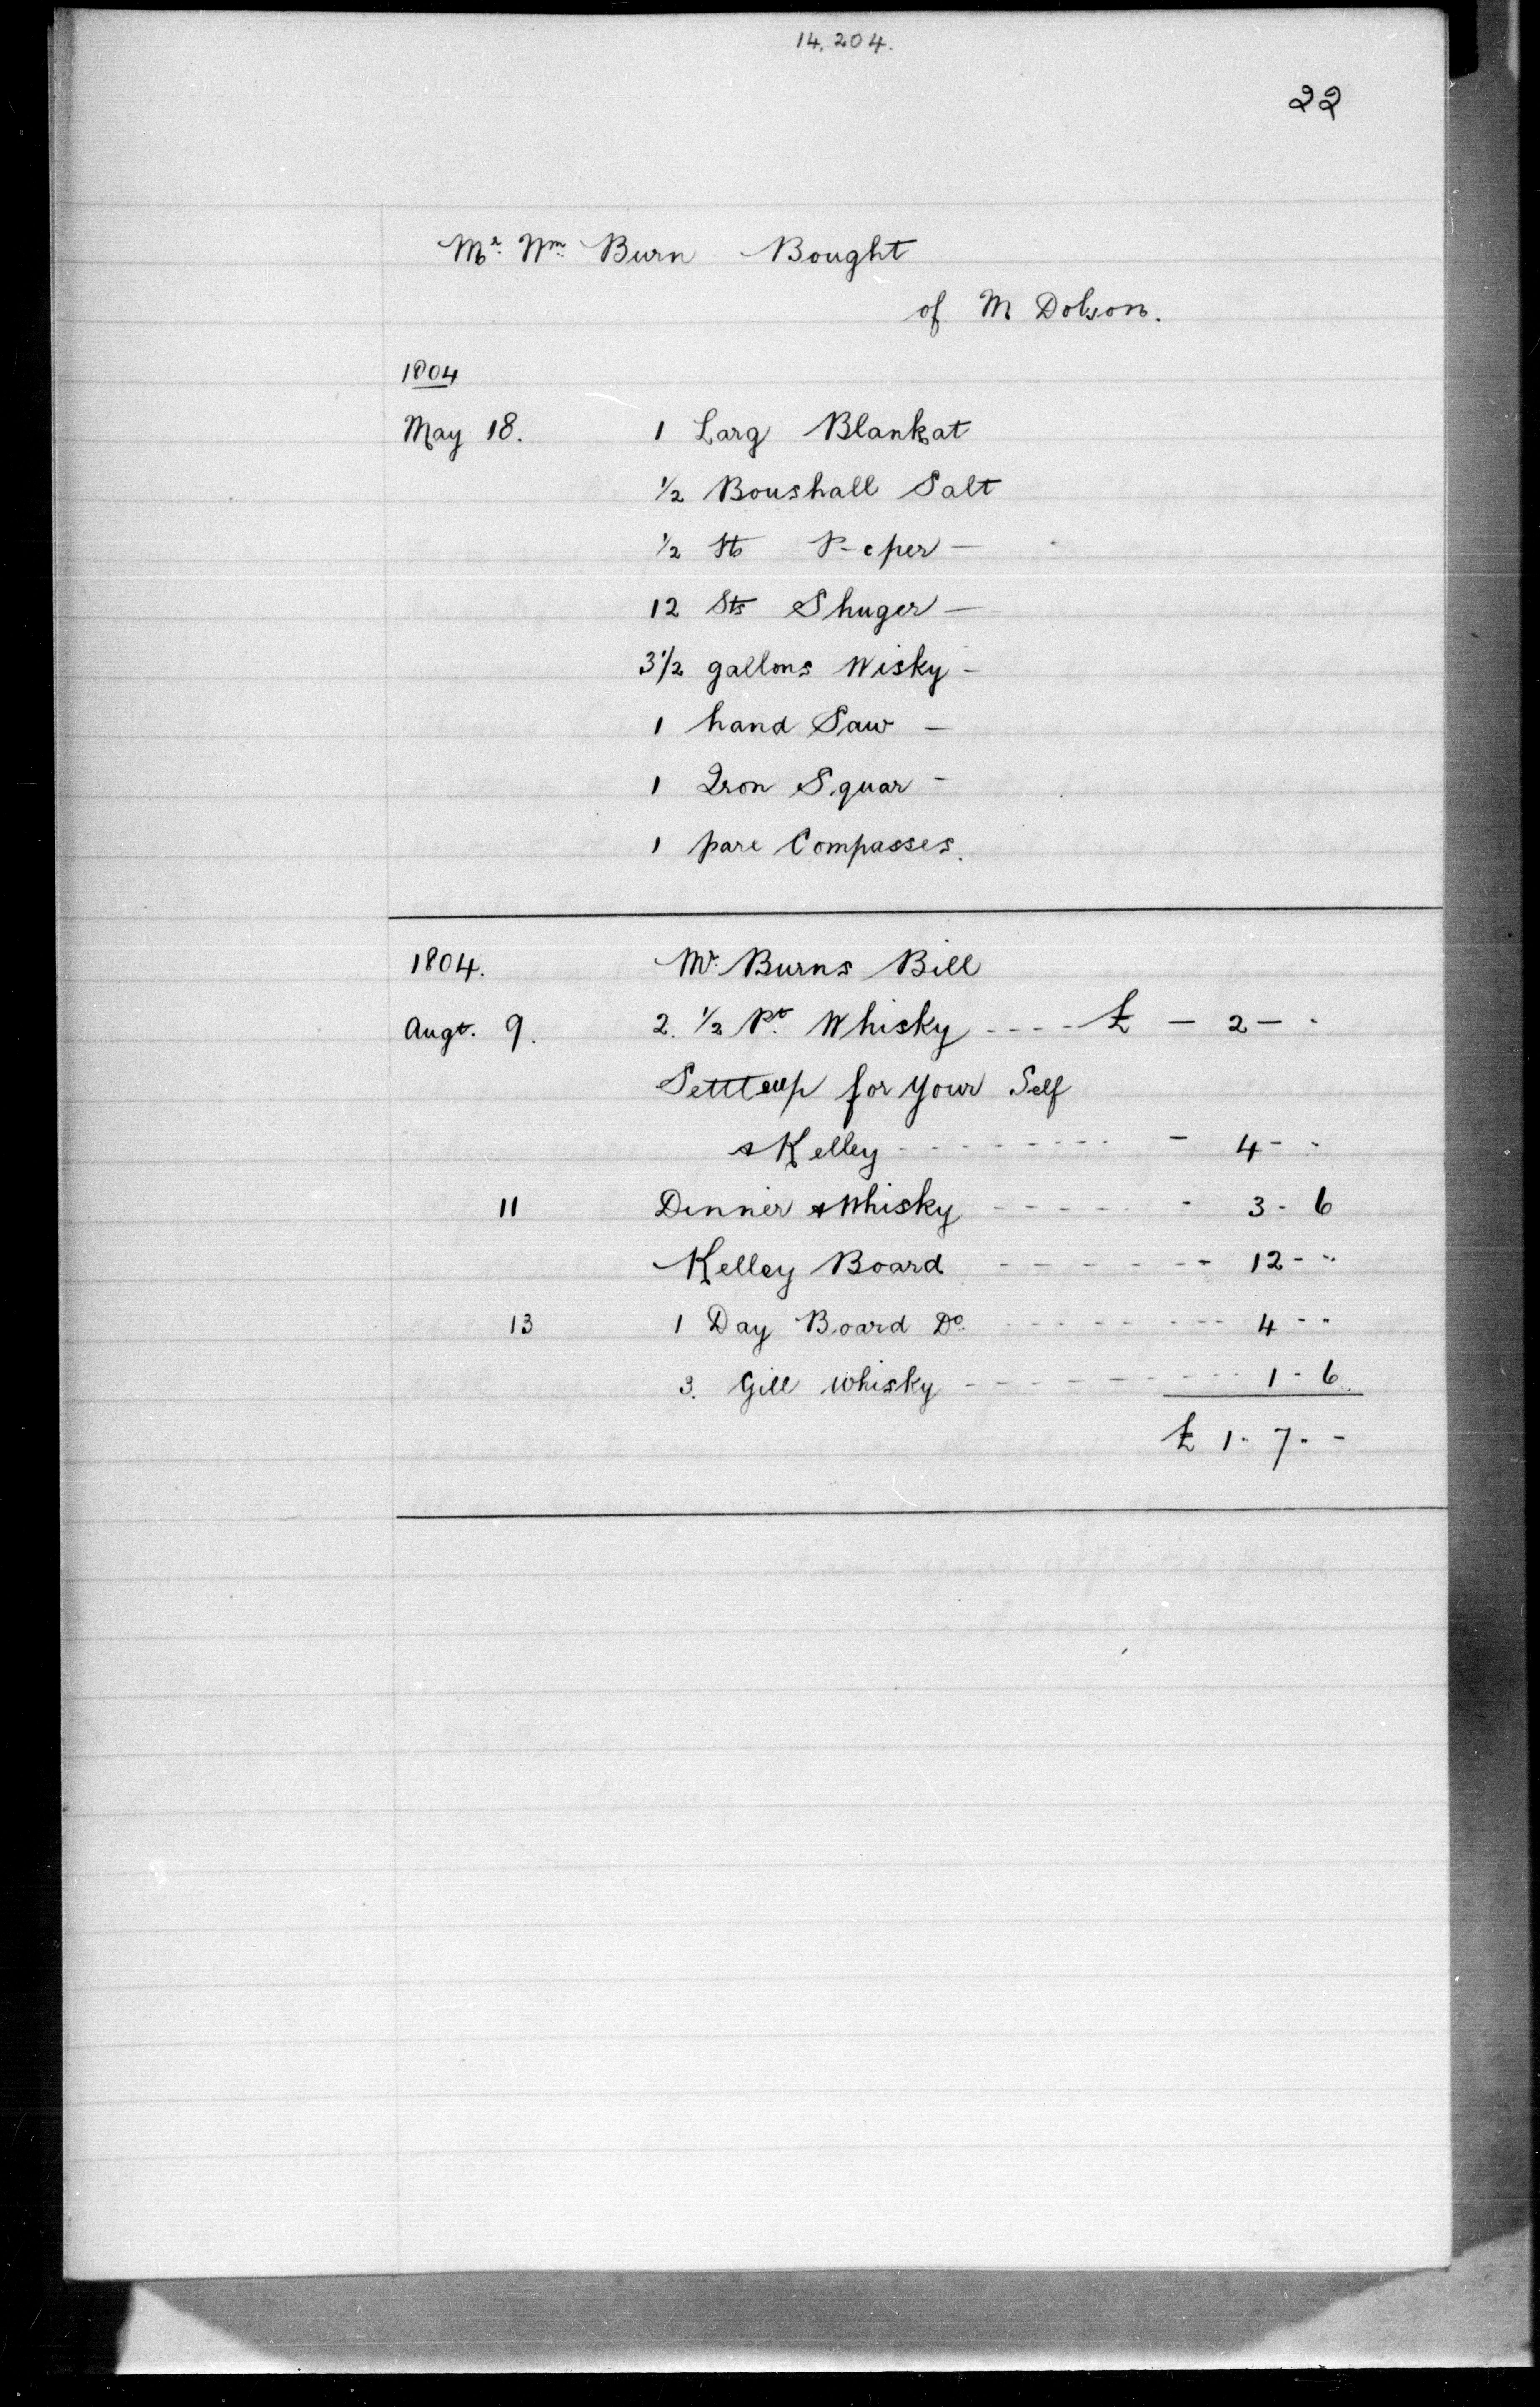 14,204.
22
Mr. Wm. Burn Bought
of M Dobson.
1804
May 18. 1 Larg Blankat
1/2 Boushall Salt
1/2 lb P-eper -
12 lbs Shuger -
3 1/2 gallons Wisky -
1 hand Saw -
1 Iron Squar -
1 pare Compasses.
1804. Mr. Burns Bill
Augt. 9. 2. 1/2 Pt. Whisky ---- £ - 2 - -
for your Self
& Kelley --------- - 4 - -
11 Dinner & Whisky ----- - 3 - 6
Kelley Board ------ 12 - -
13 1 Day Board Do. -------- 4 - -
3. Gill whisky --------- 1 - 6
£ 1 - 7 - -